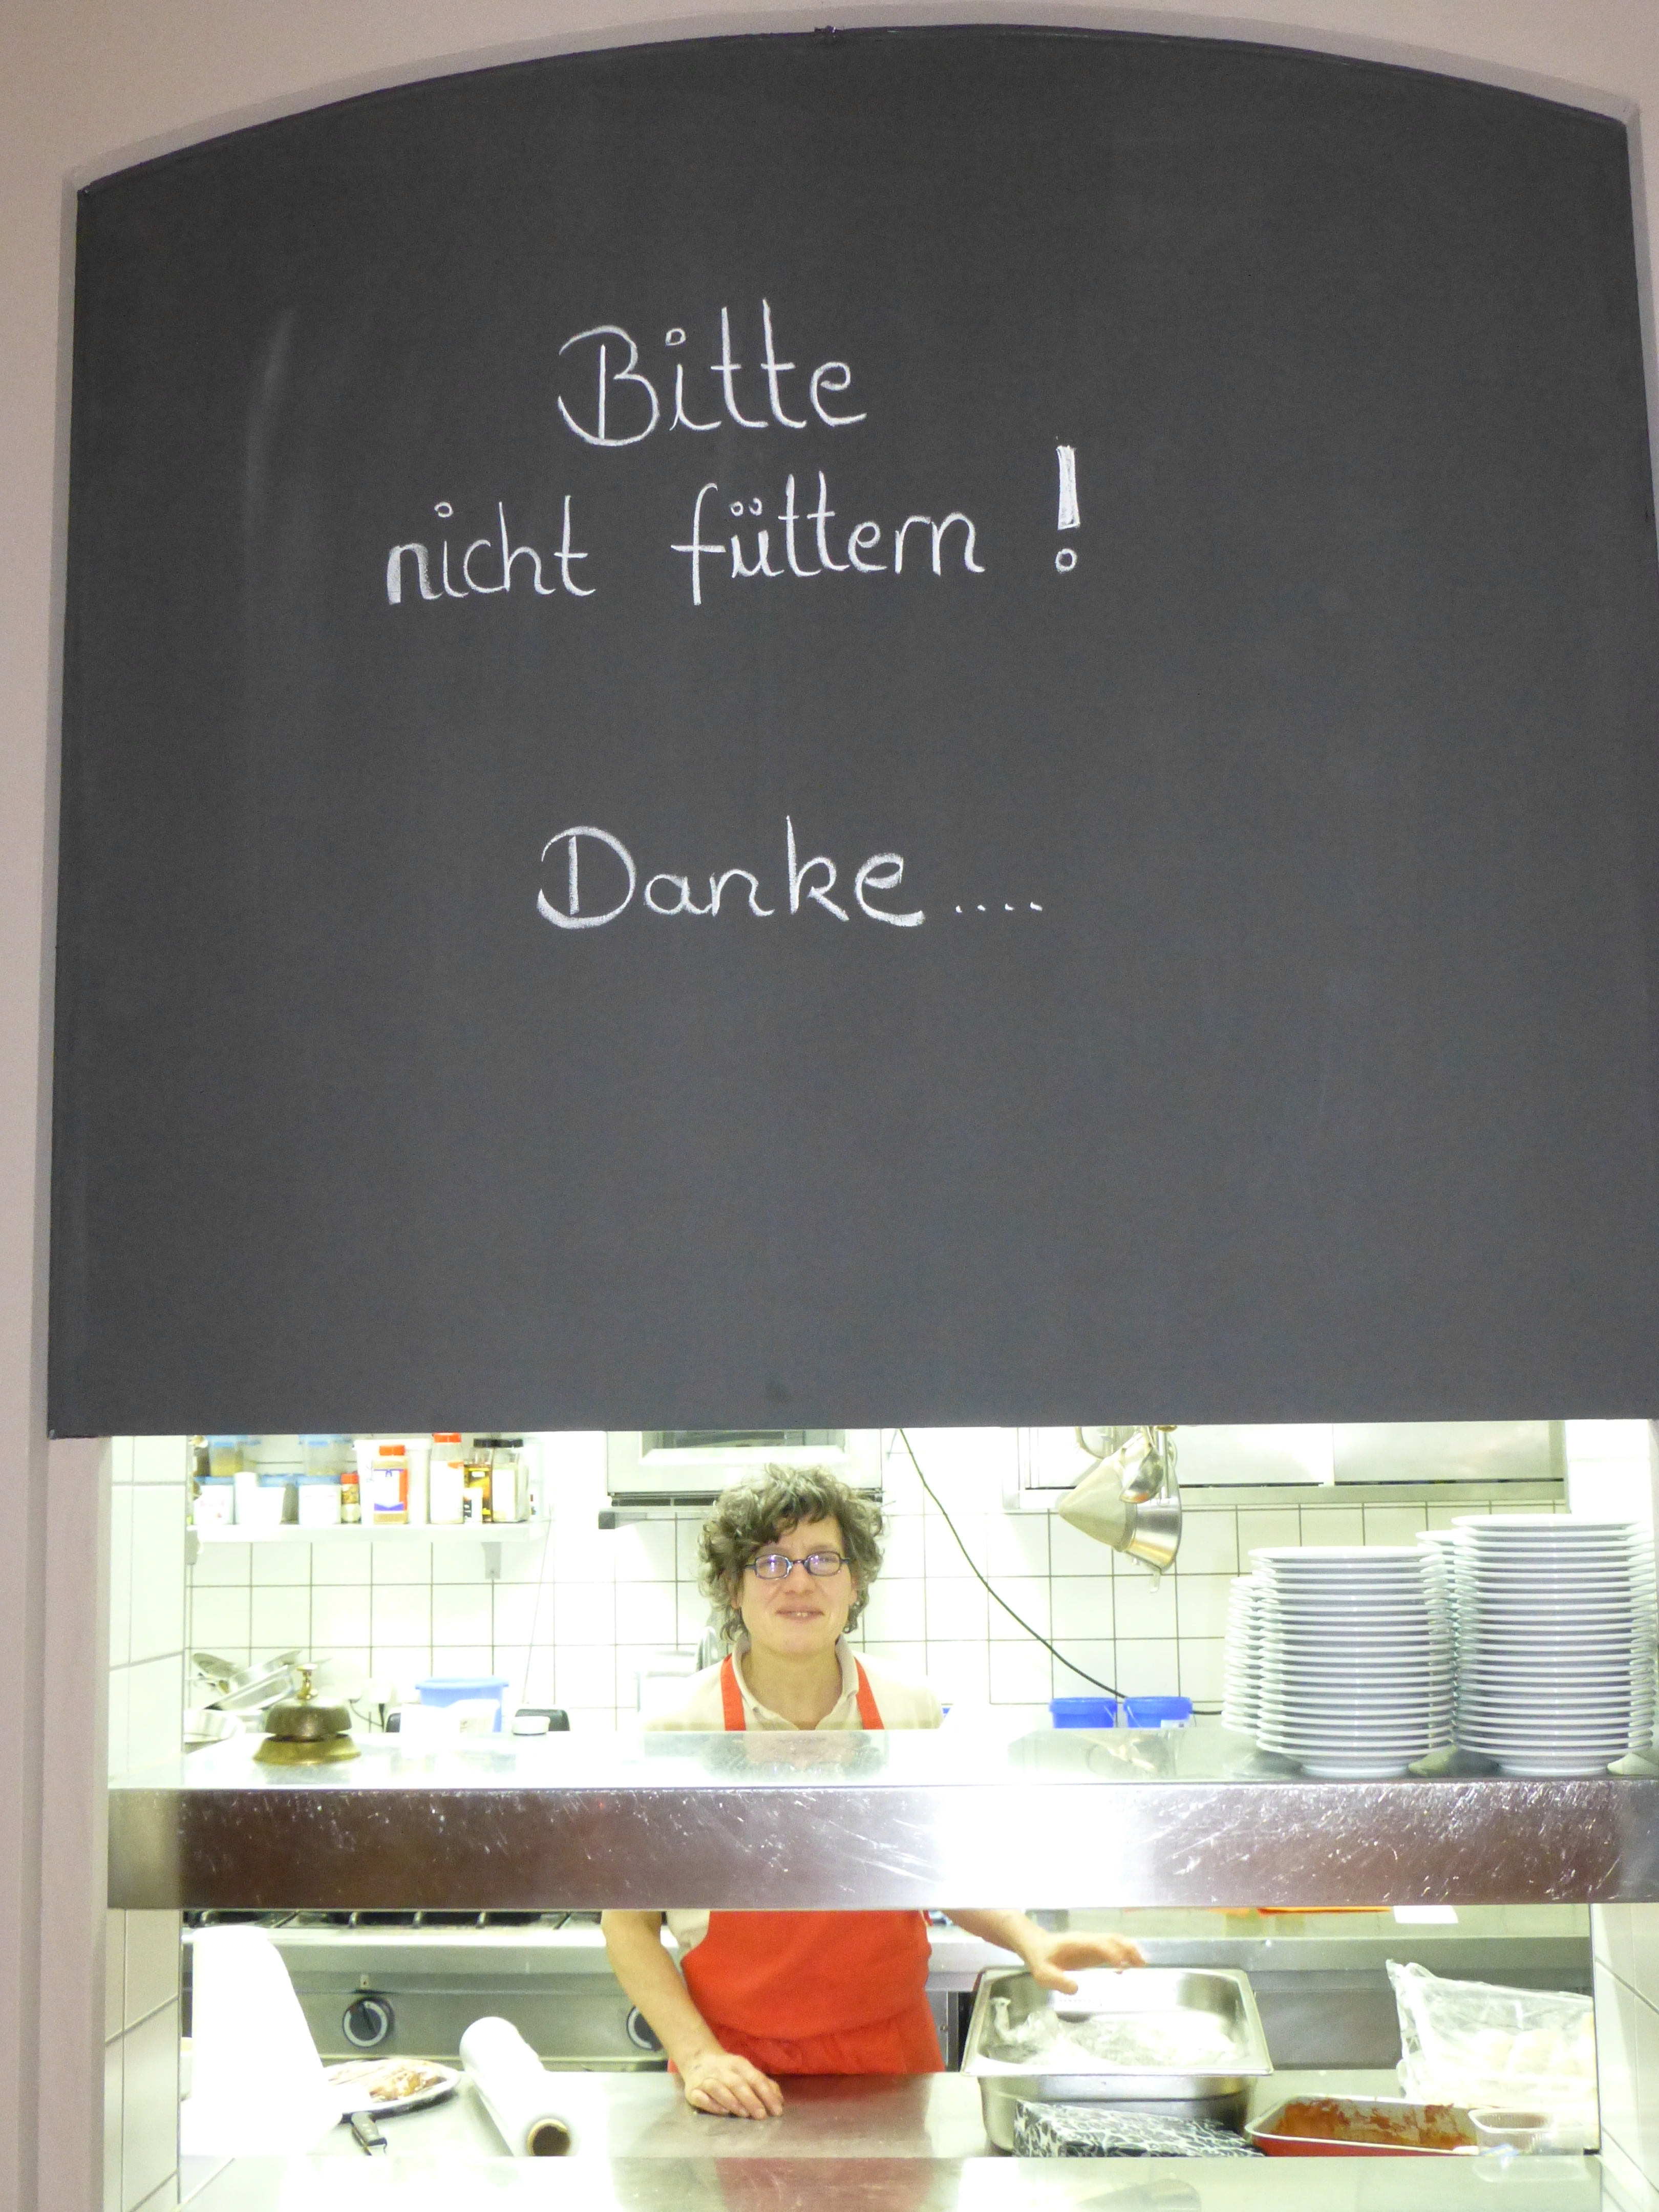 Bitte
nicht füttern !
Danke....